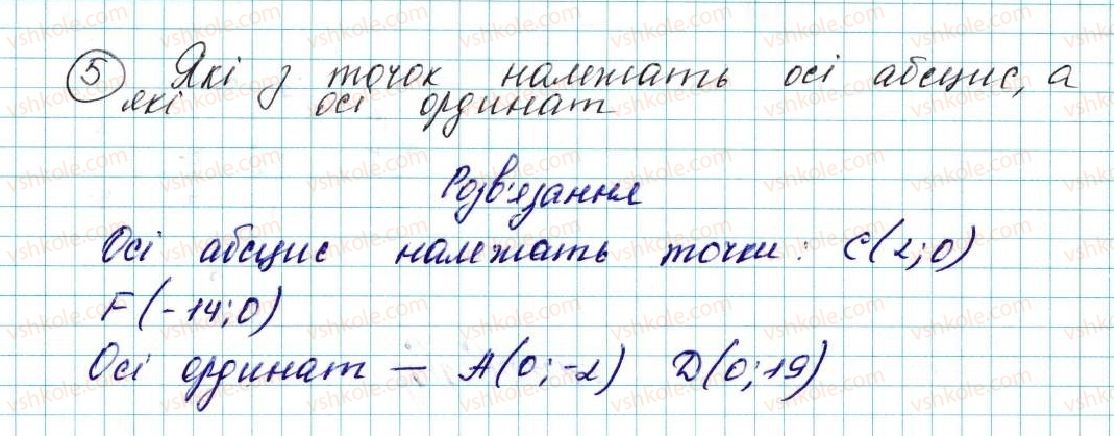 5 Які з точок належать осі абсцис, а
які осі ординат
Розв'язання
Осі абсцис належать точки: C(2;0)
F(-14;0)
Осі ординат — A(0;-2) D(0;19)